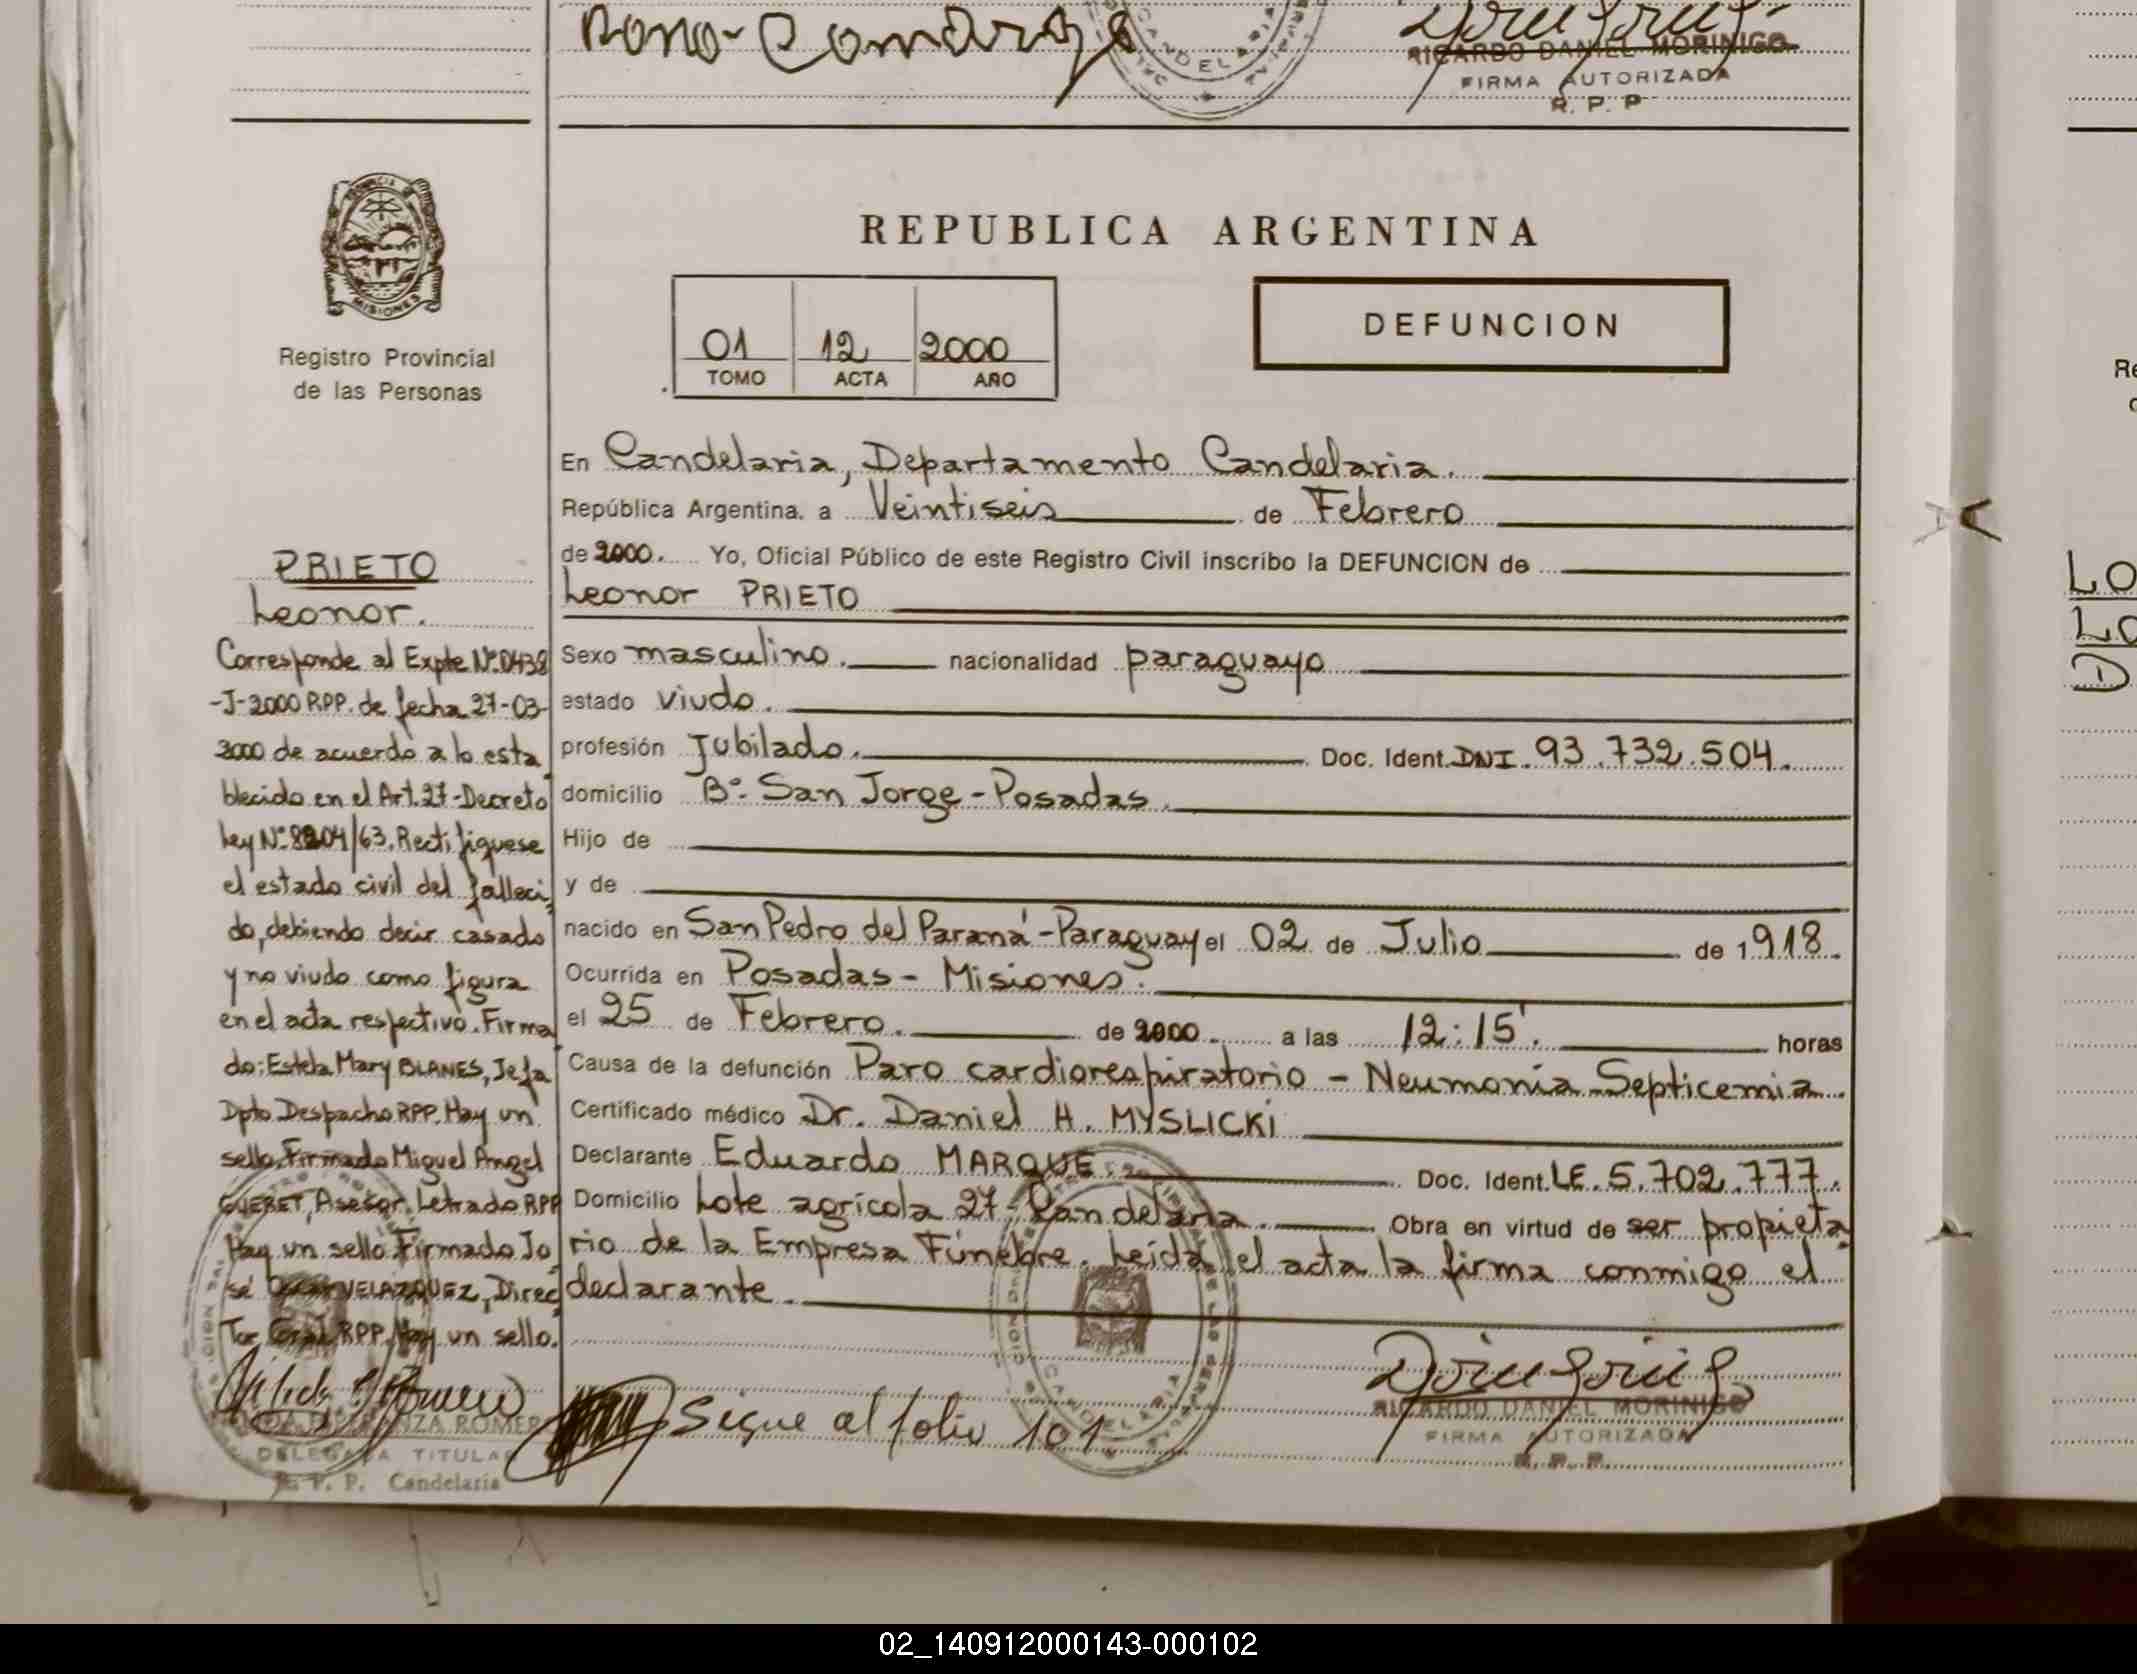 RICARDO DANIEL MORINIGO
FIRMA AUTORIZADA
R. P. P
CANDELARIA
PROVINCIA DE
MISIONES
Registro Provincial
de las Personas
REPUBLICA ARGENTINA
01 12 2000
TOMO ACTA AÑO
DEFUNCION
En Candelaria, Departamento Candelaria.
República Argentina, a Veintiseis de Febrero
de 2000. Yo, Oficial Público de este Registro Civil inscribo la DEFUNCION de
Leonor PRIETO
Sexo masculino. nacionalidad paraguayo
estado viudo.
profesión Jubilado. Doc. Ident. DNI. 93.732.504.
domicilio Bº San Jorge - Posadas.
Hijo de
y de
nacido en San Pedro del Paraná - Paraguay el 02 de Julio de 1918.
Ocurrida en Posadas - Misiones.
el 25 de Febrero. de 2000. a las 12:15'. horas
Causa de la defunción Paro cardiorespiratorio - Neumonía - Septicemia.
Certificado médico Dr. Daniel H. MYSLICKI
Declarante Eduardo MARQUE. Doc. Ident. LE. 5.702.777.
Domicilio Lote agrícola 27 - Candelaria. Obra en virtud de ser propieta
rio de la Empresa Fúnebre. Leída el acta la firma conmigo el
declarante.
Segue al folio 101
RICARDO DANIEL MORINIGO
FIRMA AUTORIZADA
R. P. P.
CANDELARIA
PRIETO
Leonor.
Corresponde al Expte Nº 0438
-J-2000 RPP. de fecha 27-03-
2000 de acuerdo a lo esta
blecido en el Art. 27 - Decreto
Ley Nº 8204/63. Rectifíquese
el estado civil del falleci
do, debiendo decir casado
y no viudo como figura
en el acta respectivo. Firma
do: Estela Mary BLANES, Jefa
Dpto Despacho RPP. Hay un
sello. Firmado Miguel Angel
GUERET, Asesor Letrado RPP
Hay un sello Firmado Jo
sé VELAZQUEZ, Direc
Tor Gral RPP. Hay un sello.
ESPERANZA ROMER
DELEGADA TITULAR
R. P. P. Candelaria
LO
LO
D
Re
02_140912000143-000102